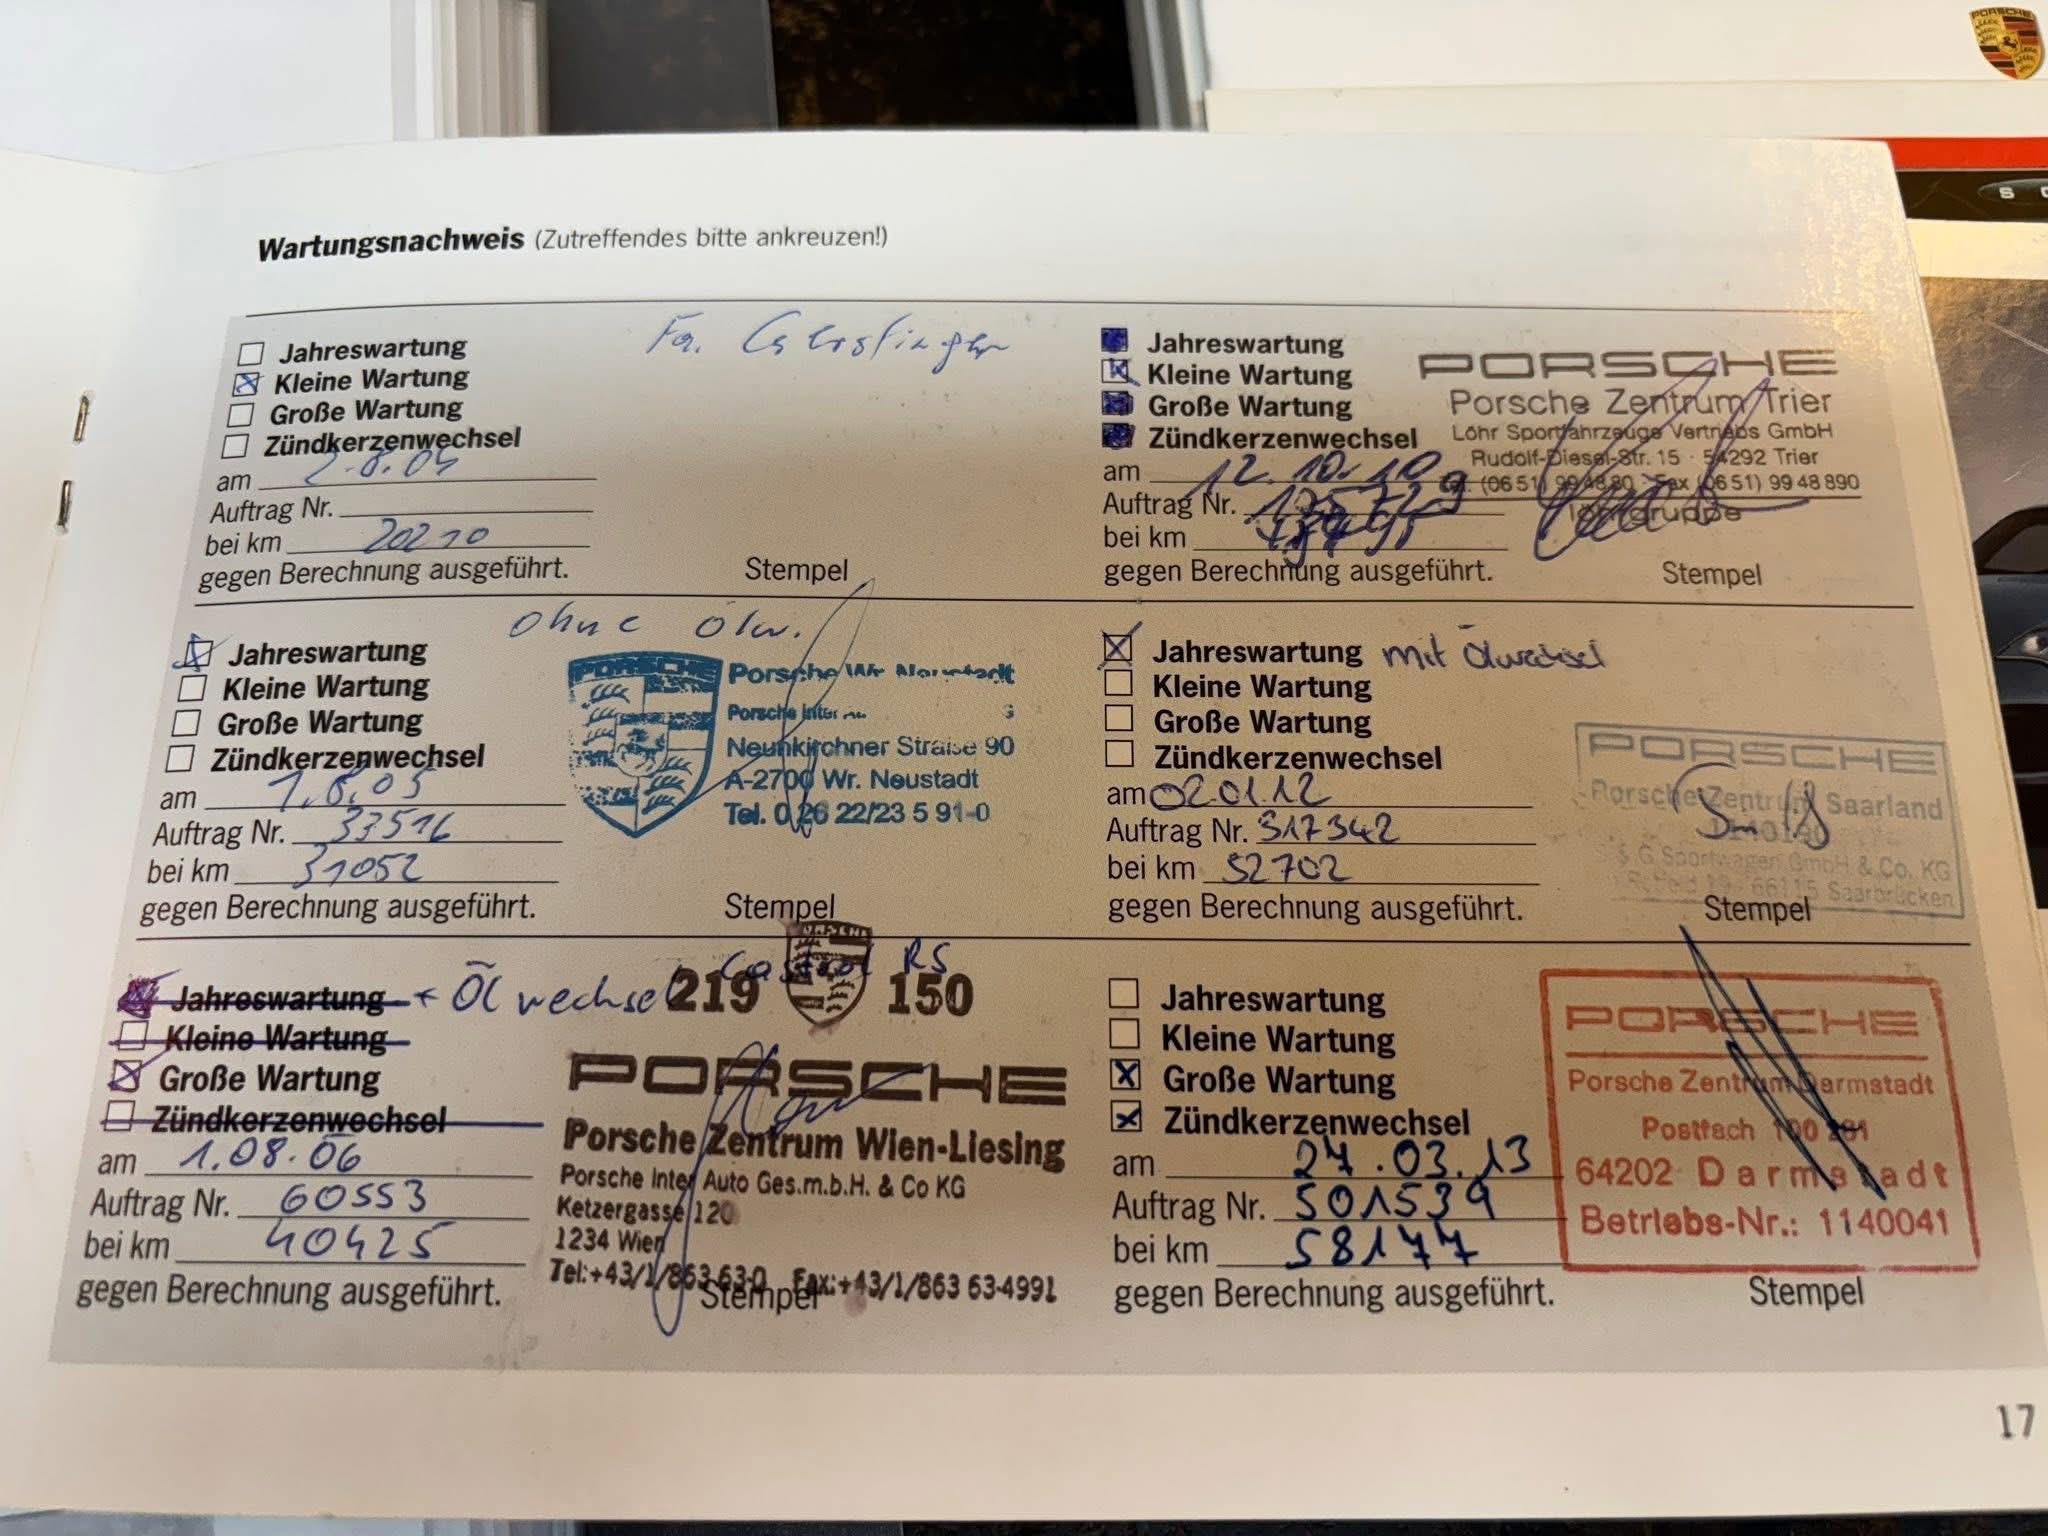 PORSCHE
Wartungsnachweis (Zutreffendes bitte ankreuzen!)
Jahreswartung
Kleine Wartung
Große Wartung
Zündkerzenwechsel
Fa.
am 2.8.04
Auftrag Nr.
bei km 20210
gegen Berechnung ausgeführt.
Stempel
Jahreswartung
Kleine Wartung
Große Wartung
Zündkerzenwechsel
am 12.10.10
Auftrag Nr.
bei km
gegen Berechnung ausgeführt.
PORSCHE
Porsche Zentrum Trier
Löhr Sportfahrzeuge Vertriebs GmbH
Rudolf-Diesel-Str. 15 · 54292 Trier
Tel. (06 51) 99 48 80 · Fax (06 51) 99 48 890
löhrgruppe
Stempel
ohne Ölw.
Jahreswartung
Kleine Wartung
Große Wartung
Zündkerzenwechsel
am 1.8.05
Auftrag Nr. 33516
bei km 31052
gegen Berechnung ausgeführt.
PORSCHE
Porsche Wr. Neustadt
Porsche Inter
Neunkirchner Straße 90
A-2700 Wr. Neustadt
Tel. 0 26 22/23 5 91-0
Stempel
Jahreswartung mit Ölwechsel
Kleine Wartung
Große Wartung
Zündkerzenwechsel
am 02.01.12
Auftrag Nr. 317342
bei km 52702
gegen Berechnung ausgeführt.
PORSCHE
Porsche Zentrum Saarland
S G Sportwagen GmbH & Co. KG
66115 Saarbrücken
Stempel
Jahreswartung + Ölwechsel Castrol RS
Kleine Wartung
Große Wartung
Zündkerzenwechsel
am 1.08.06
Auftrag Nr. 60553
bei km 40425
gegen Berechnung ausgeführt.
219 150
PORSCHE
Porsche Zentrum Wien-Liesing
Porsche Inter Auto Ges.m.b.H. & Co KG
Ketzergasse 120
1234 Wien
Tel:+43/1/863 63-0 Fax:+43/1/863 63-4991
Stempel
Jahreswartung
Kleine Wartung
Große Wartung
Zündkerzenwechsel
am 27.03.13
Auftrag Nr. 501539
bei km 58177
gegen Berechnung ausgeführt.
PORSCHE
Porsche Zentrum Darmstadt
Postfach 100 261
64202 Darmstadt
Betriebs-Nr.: 1140041
Stempel
17